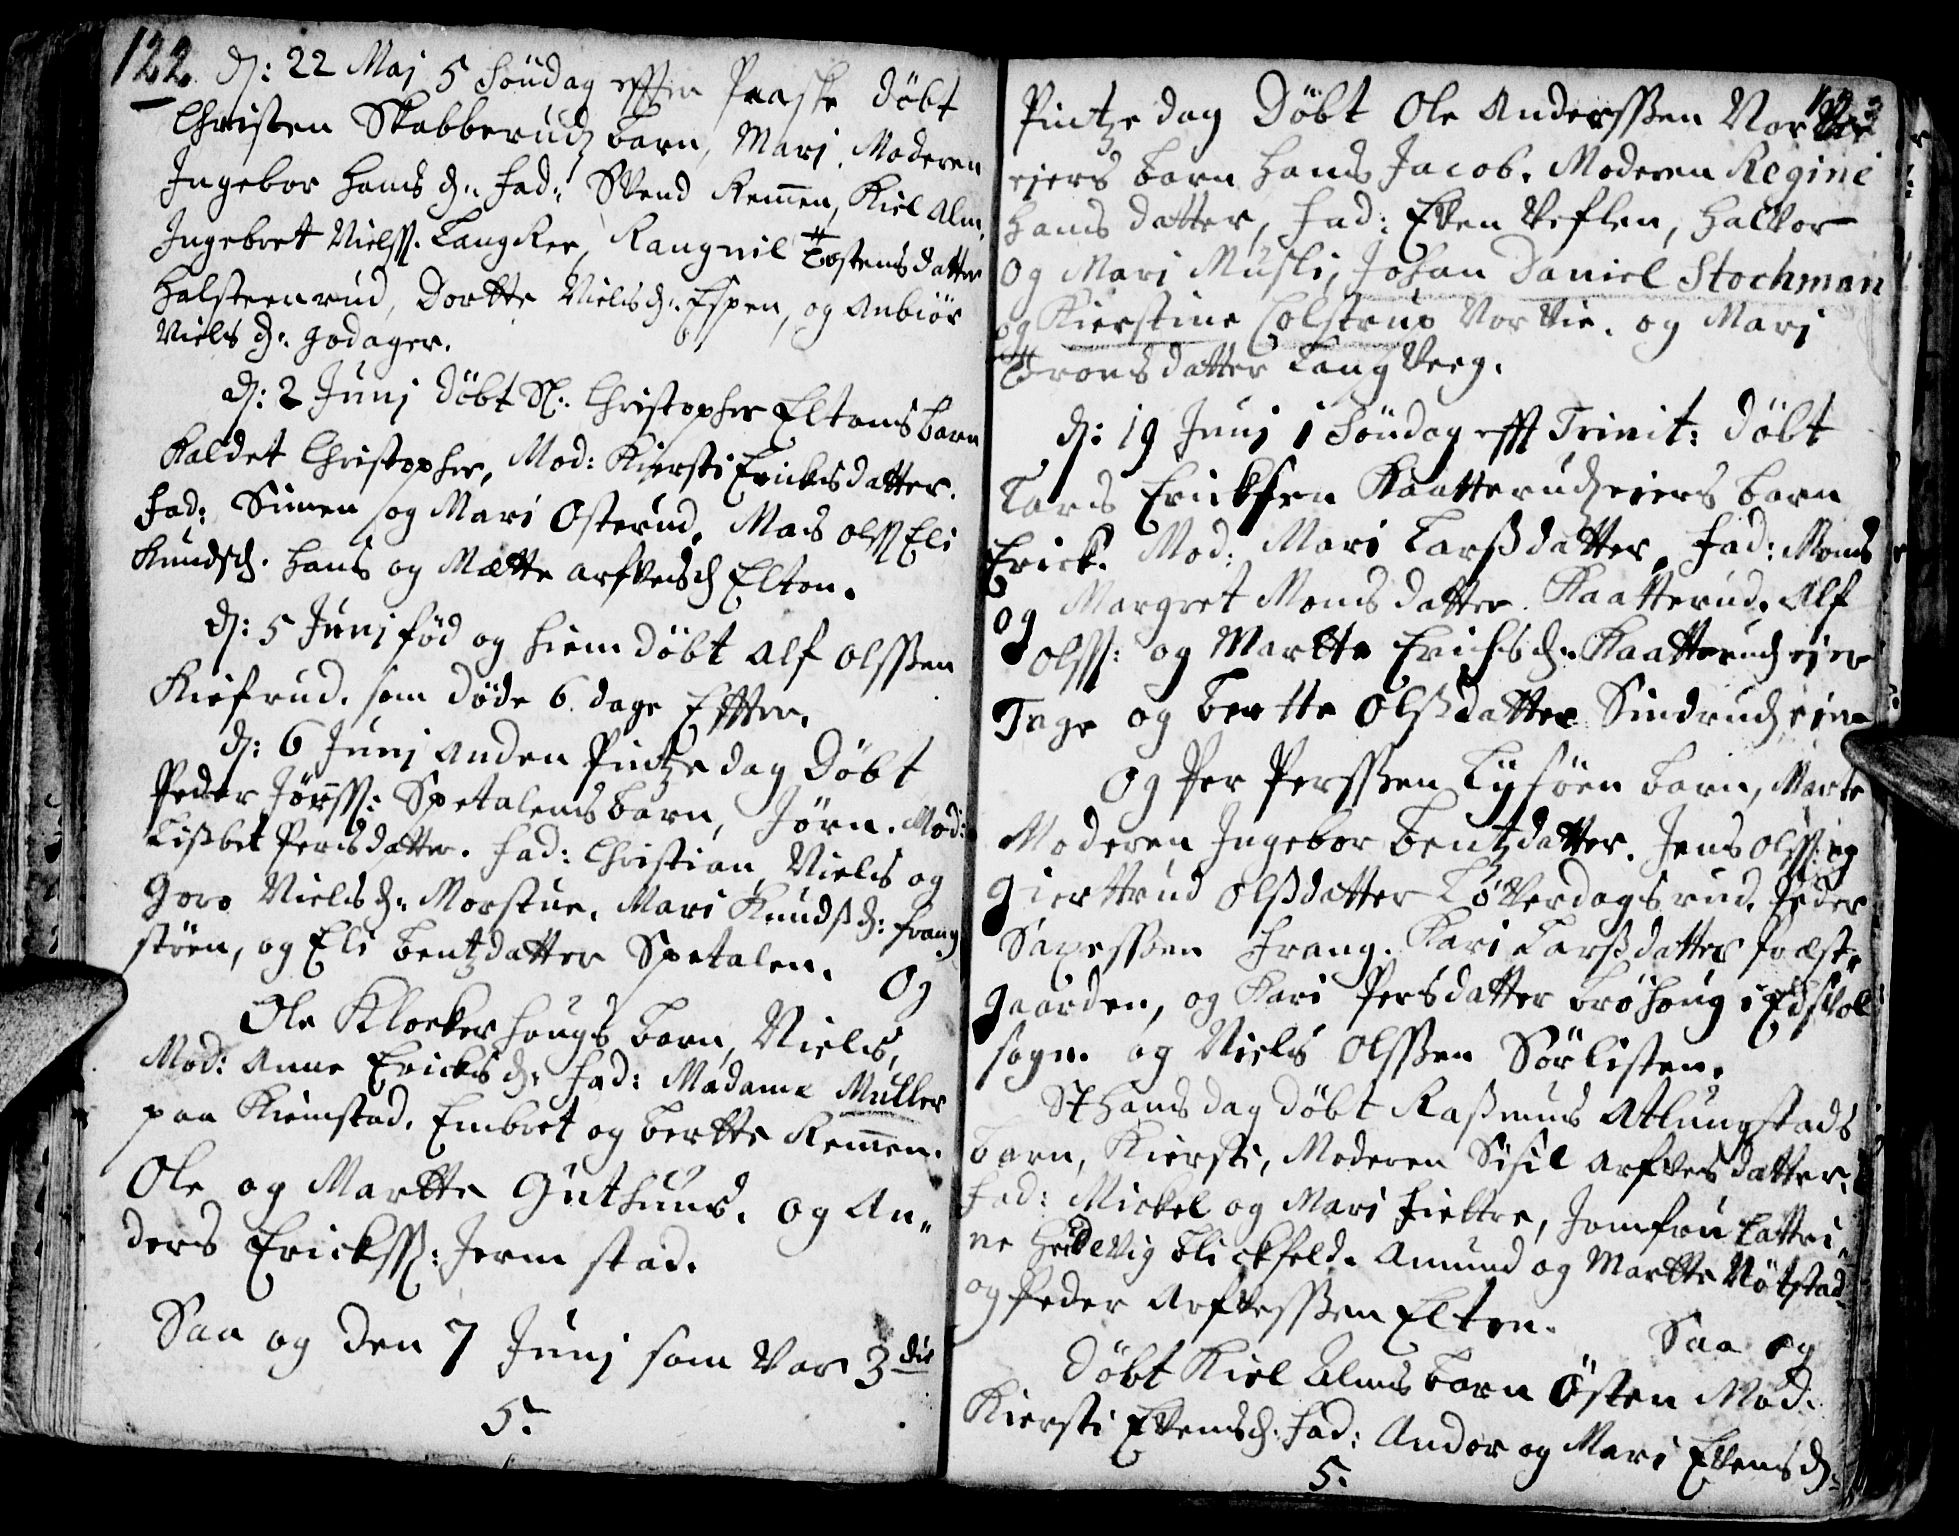 122. dj: 22 Maj 5 Söndag effter Paaske döbt
Christen Skabberudz barn, Mari. Moderen
Ingebor Hans d. Fad: Svend Remmen, Kiel Alm,
Ingebret Nielss. Langkee, Rangnil Tostens datter
Halsteenrud, Dortte Niels d. Espen, og Anbiör
Niels d. Godager.
dj: 2 Junj döbt Sl. Christopher Eltons barn
Kaldet Christopher, Mod: Kiersti Ericksdatter.
Fad: Simen og Mari Osterud, Mads olss Eli
Knudsd. Hans og Mætte arfvesd Elton.
dj: 5 Junj föd og hiemdöbt Alf olssen
Kiefrud. som döde 6 dage Effter.
dj: 6 Junj anden Pintze dag döbt
Peder Jörss: Spetalens barn, Jörn. Mod:
Lisbet Persdatter. Fad: Christian, Niels og
Goro Niels d. Morstue. Mari Knudsd: frang
stöen, og Eli bentzdatter Spetalen. Og
Ole Klockerhougs barn, Niels,
Mod: Anne Ericks d. Fad: Madame Muller
paa Kiemstad. Embret og bertte Remmen.
Ole og Martte Guthuus. og An"
ders Erickss: Jermstad.
Saa og den 7 Junj som var 3die
5.
123
Pintze dag Döbt Ole Anderssen Norvie
eiers barn Hans Jacob. Moderen Regine
Hans datter, Fad: Even Veflen, Halvor
og Mari Musli, Johan Daniel Stochman
og Kierstine Colstrup Norvie. og Mari
Tronsdatter Langveeg.
dj: 19 Junj 1 Söndag efft Trinit: döbt
Lars Ericksen Kaatterudz eiers barn
Erick. Mod: Mari Larsdatter, Fad: Mons
og Margret Monsdatter Kaatterud. Alf
olss: og Martte Erichs d. Kaatterudz eier
Inge og bertte Olsdatter Sindrudz eier
Og Per Perssen Lysöen barn, Marte
Moderen Ingebor bentzdatter. Jens olss: og
Gierttrud Olsdatter Löverdagsrud. Peder
Saxessen Frang. Kari Larsdatter Præste
gaarden, og Kari Persdatter bröhoug i Edsvol
sogn. og Niels Olssen Sörlisten.
St Hans dag döbt Rasmus Atlungstads
barn, Kiersti, Moderen Sisil Arfvesdatter.
Fad: Mickel og Mari Fiettre, Jomfru Cattri"
ne Hedevig Blickfeld. Amund og Martte Nötstad
og Peder Arfvessen Elton. Saa og
döbt Kiel Alms barn Östen Mod:
Kiersti Evensd. Fad: Andor og Mari Evens d.
5.